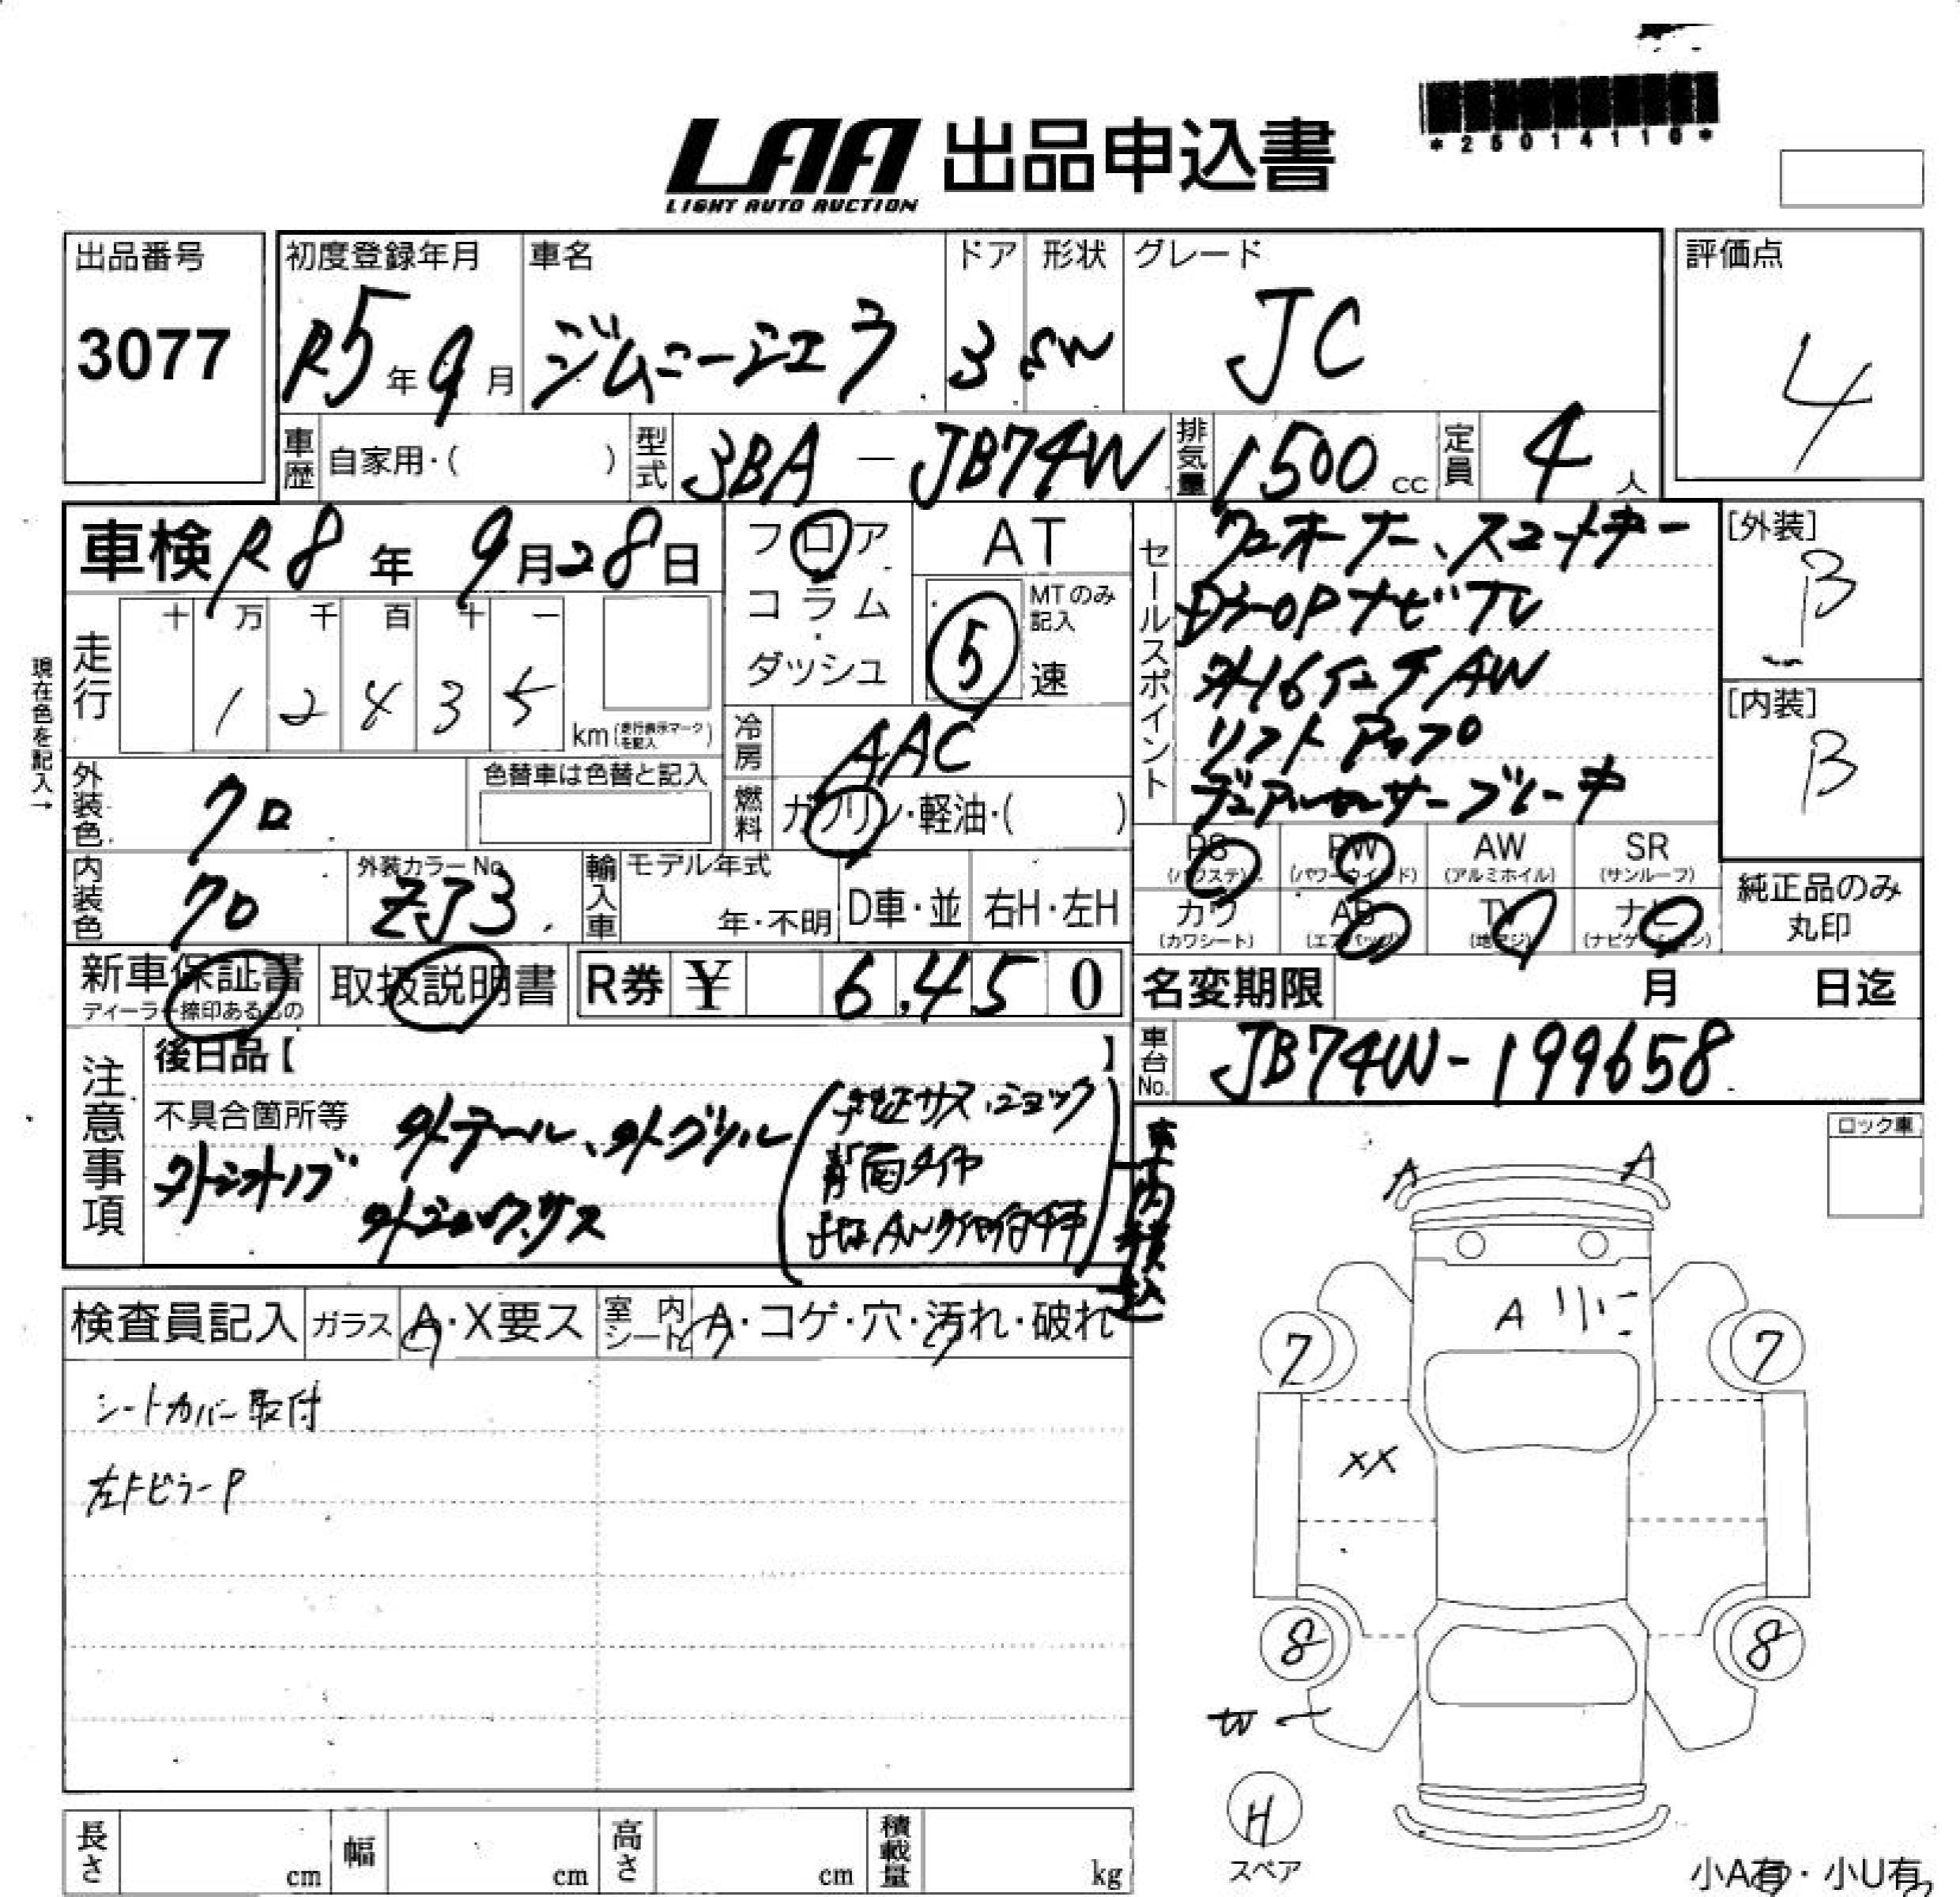 *25014110*
LAA 出品申込書
LIGHT AUTO AUCTION
出品番号 初度登録年月 車名 ドア 形状 グレード 評価点
3077 R5年9月 ジムニーシエラ 3 SW JC 4
車歴 自家用・( ) 型式 3BA - JB74W 排気量 1500cc 定員 4人
車検 R8年9月28日 フロア AT
コラム
ダッシュ
5 MTのみ記入 速
走行 十 万 千 百 十 一
1 2 4 3 5 km (走行表示マークを記入)
現在色を記入→
冷房 AAC
燃料 ガソリン・軽油・( )
外装色 クロ 色替車は色替と記入
内装色 クロ 外装カラーNo. ZJ3 輸入車 モデル年式 年・不明 D車・並 右H・左H
セールスポイント ワンオーナー、スマートキー
DラーOPナビTV
外16インチAW
リフトアップ
デュアルセンサーブレーキ
[外装] B
[内装] B
PS PW AW SR
(パワステ) (パワーウインドウ) (アルミホイル) (サンルーフ)
カワ AB TV ナビ
(カワシート) (エアバッグ) (地デジ) (ナビゲーション)
純正品のみ
丸印
新車保証書 取扱説明書 R券 ¥ 6,450
ディーラー捺印あるもの
名変期限 月 日迄
車台No. JB74W-199658
注意事項 後日品【 】
不具合箇所等 外テール、外グリル
外シフトノブ 外ショック、サス
(純正サス、ショック
背面タイヤ
純正AWタイヤ付4本)
車内積込
ロック車
検査員記入 ガラス A・X要ス 室内シート A・コゲ・穴・汚れ・破れ
シートカバー取付
左FピラーP
A A
A
7 7
XX
8 8
W
H
スペア
長さ cm 幅 cm 高さ cm 積載量 kg
小A有・小U有